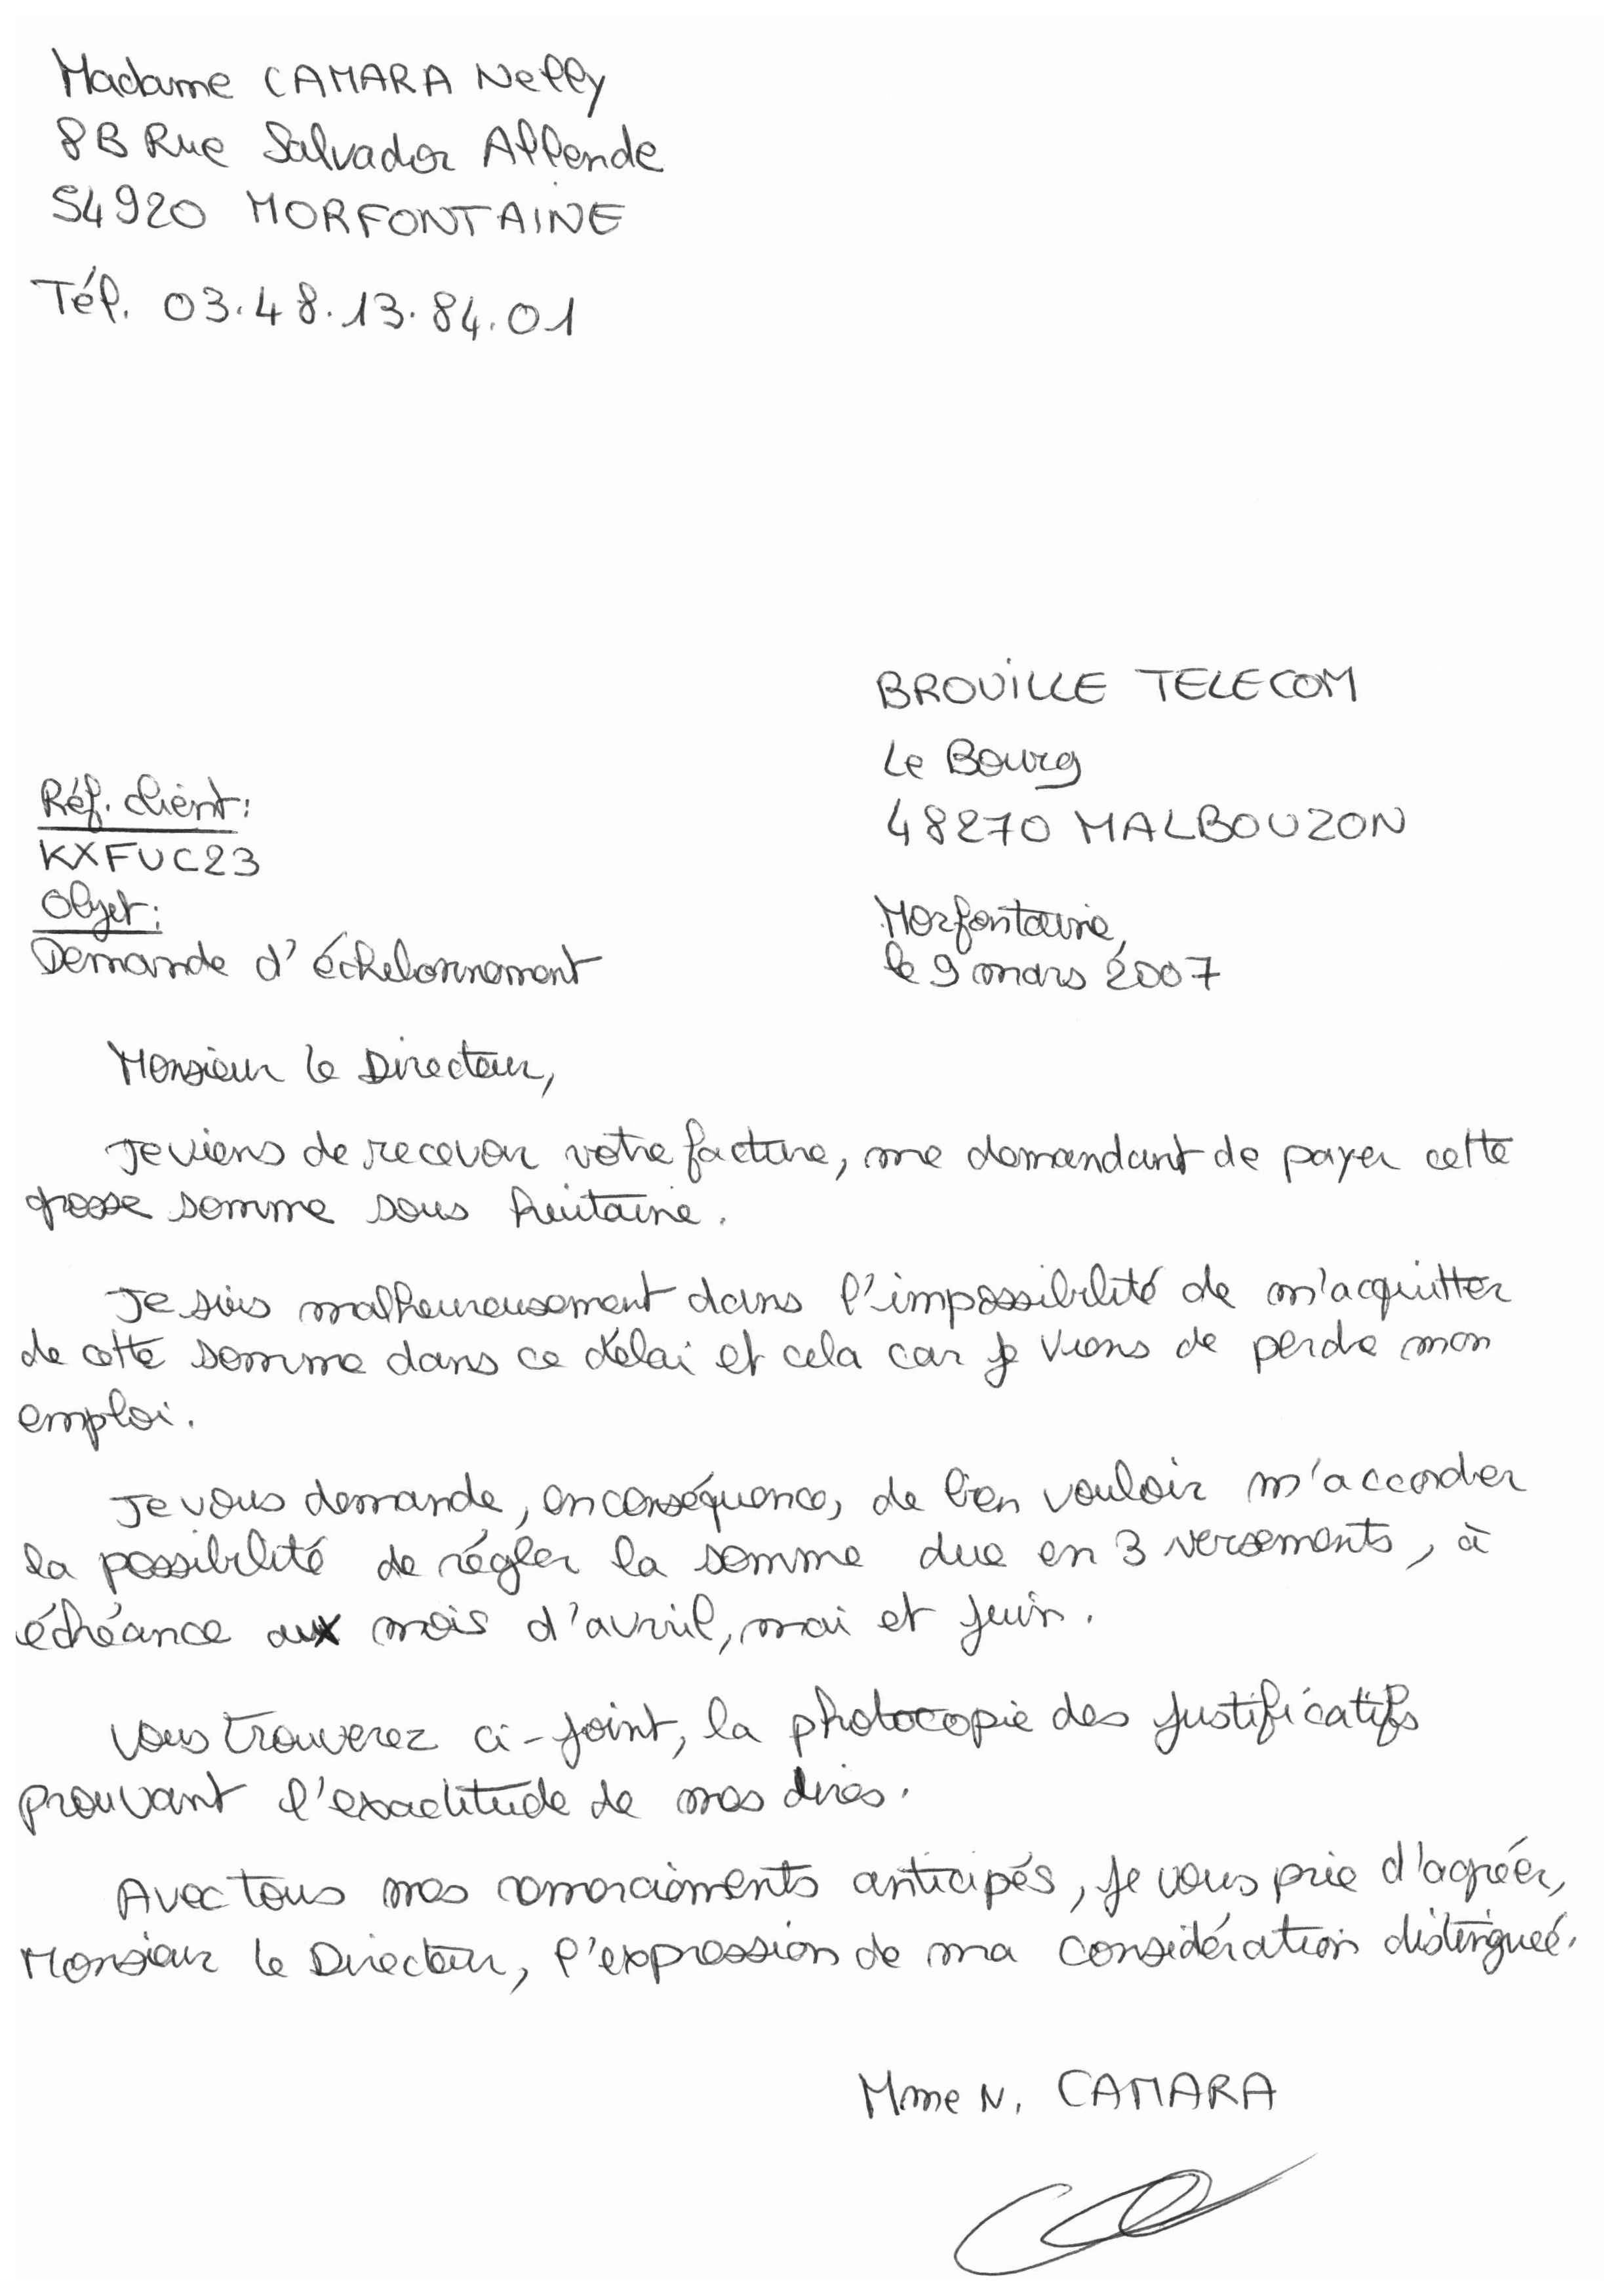 Madame CAMARA Nelly
8B Rue Salvador Allende
54920 MORFONTAINE
Tél. 03.48.13.84.01
BROUILLE TELECOM
Le Bourg
48270 MALBOUZON
Réf. client:
KXFUC23
Objet:
Demande d'échelonnement
Morfontaine,
le 9 mars 2007
Monsieur le Directeur,
Je viens de recevoir votre facture, me demandant de payer cette
grosse somme sous huitaine.
Je suis malheureusement dans l'impossibilité de m'acquitter
de cette somme dans ce délai et cela car je viens de perdre mon
emploi.
Je vous demande, en conséquence, de bien vouloir m'accorder
la possibilité de régler la somme due en 3 versements, à
échéance aux mois d'avril, mai et juin.
Vous trouverez ci-joint, la photocopie des justificatifs
prouvant l'exactitude de mes dires.
Avec tous mes remerciements anticipés, je vous prie d'agréer,
Monsieur le Directeur, l'expression de ma considération distinguée.
Mme N. CAMARA